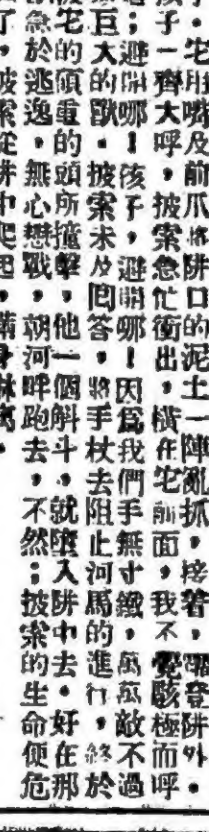 子·它用嘴及前爪將阱口的泥土一陣亂抓，接着，躍登阱外。
孩子一齊大呼，披索急忙衝出，橫在它前面，我不覺駭極而呼
；避開哪！孩子，避開哪！因爲我們手無寸鐵，萬萬敵不過
巨大的獸。披索未及回答，將手杖去阻止河馬的進行，終於
它的頭重的頭所撞擊，他一個斛斗，就墮入阱中去。好在那
急於逃逸，無心戀戰，朝河畔跑去，不然；披索的生命便危
了，披索從阱中爬起，滿身淋